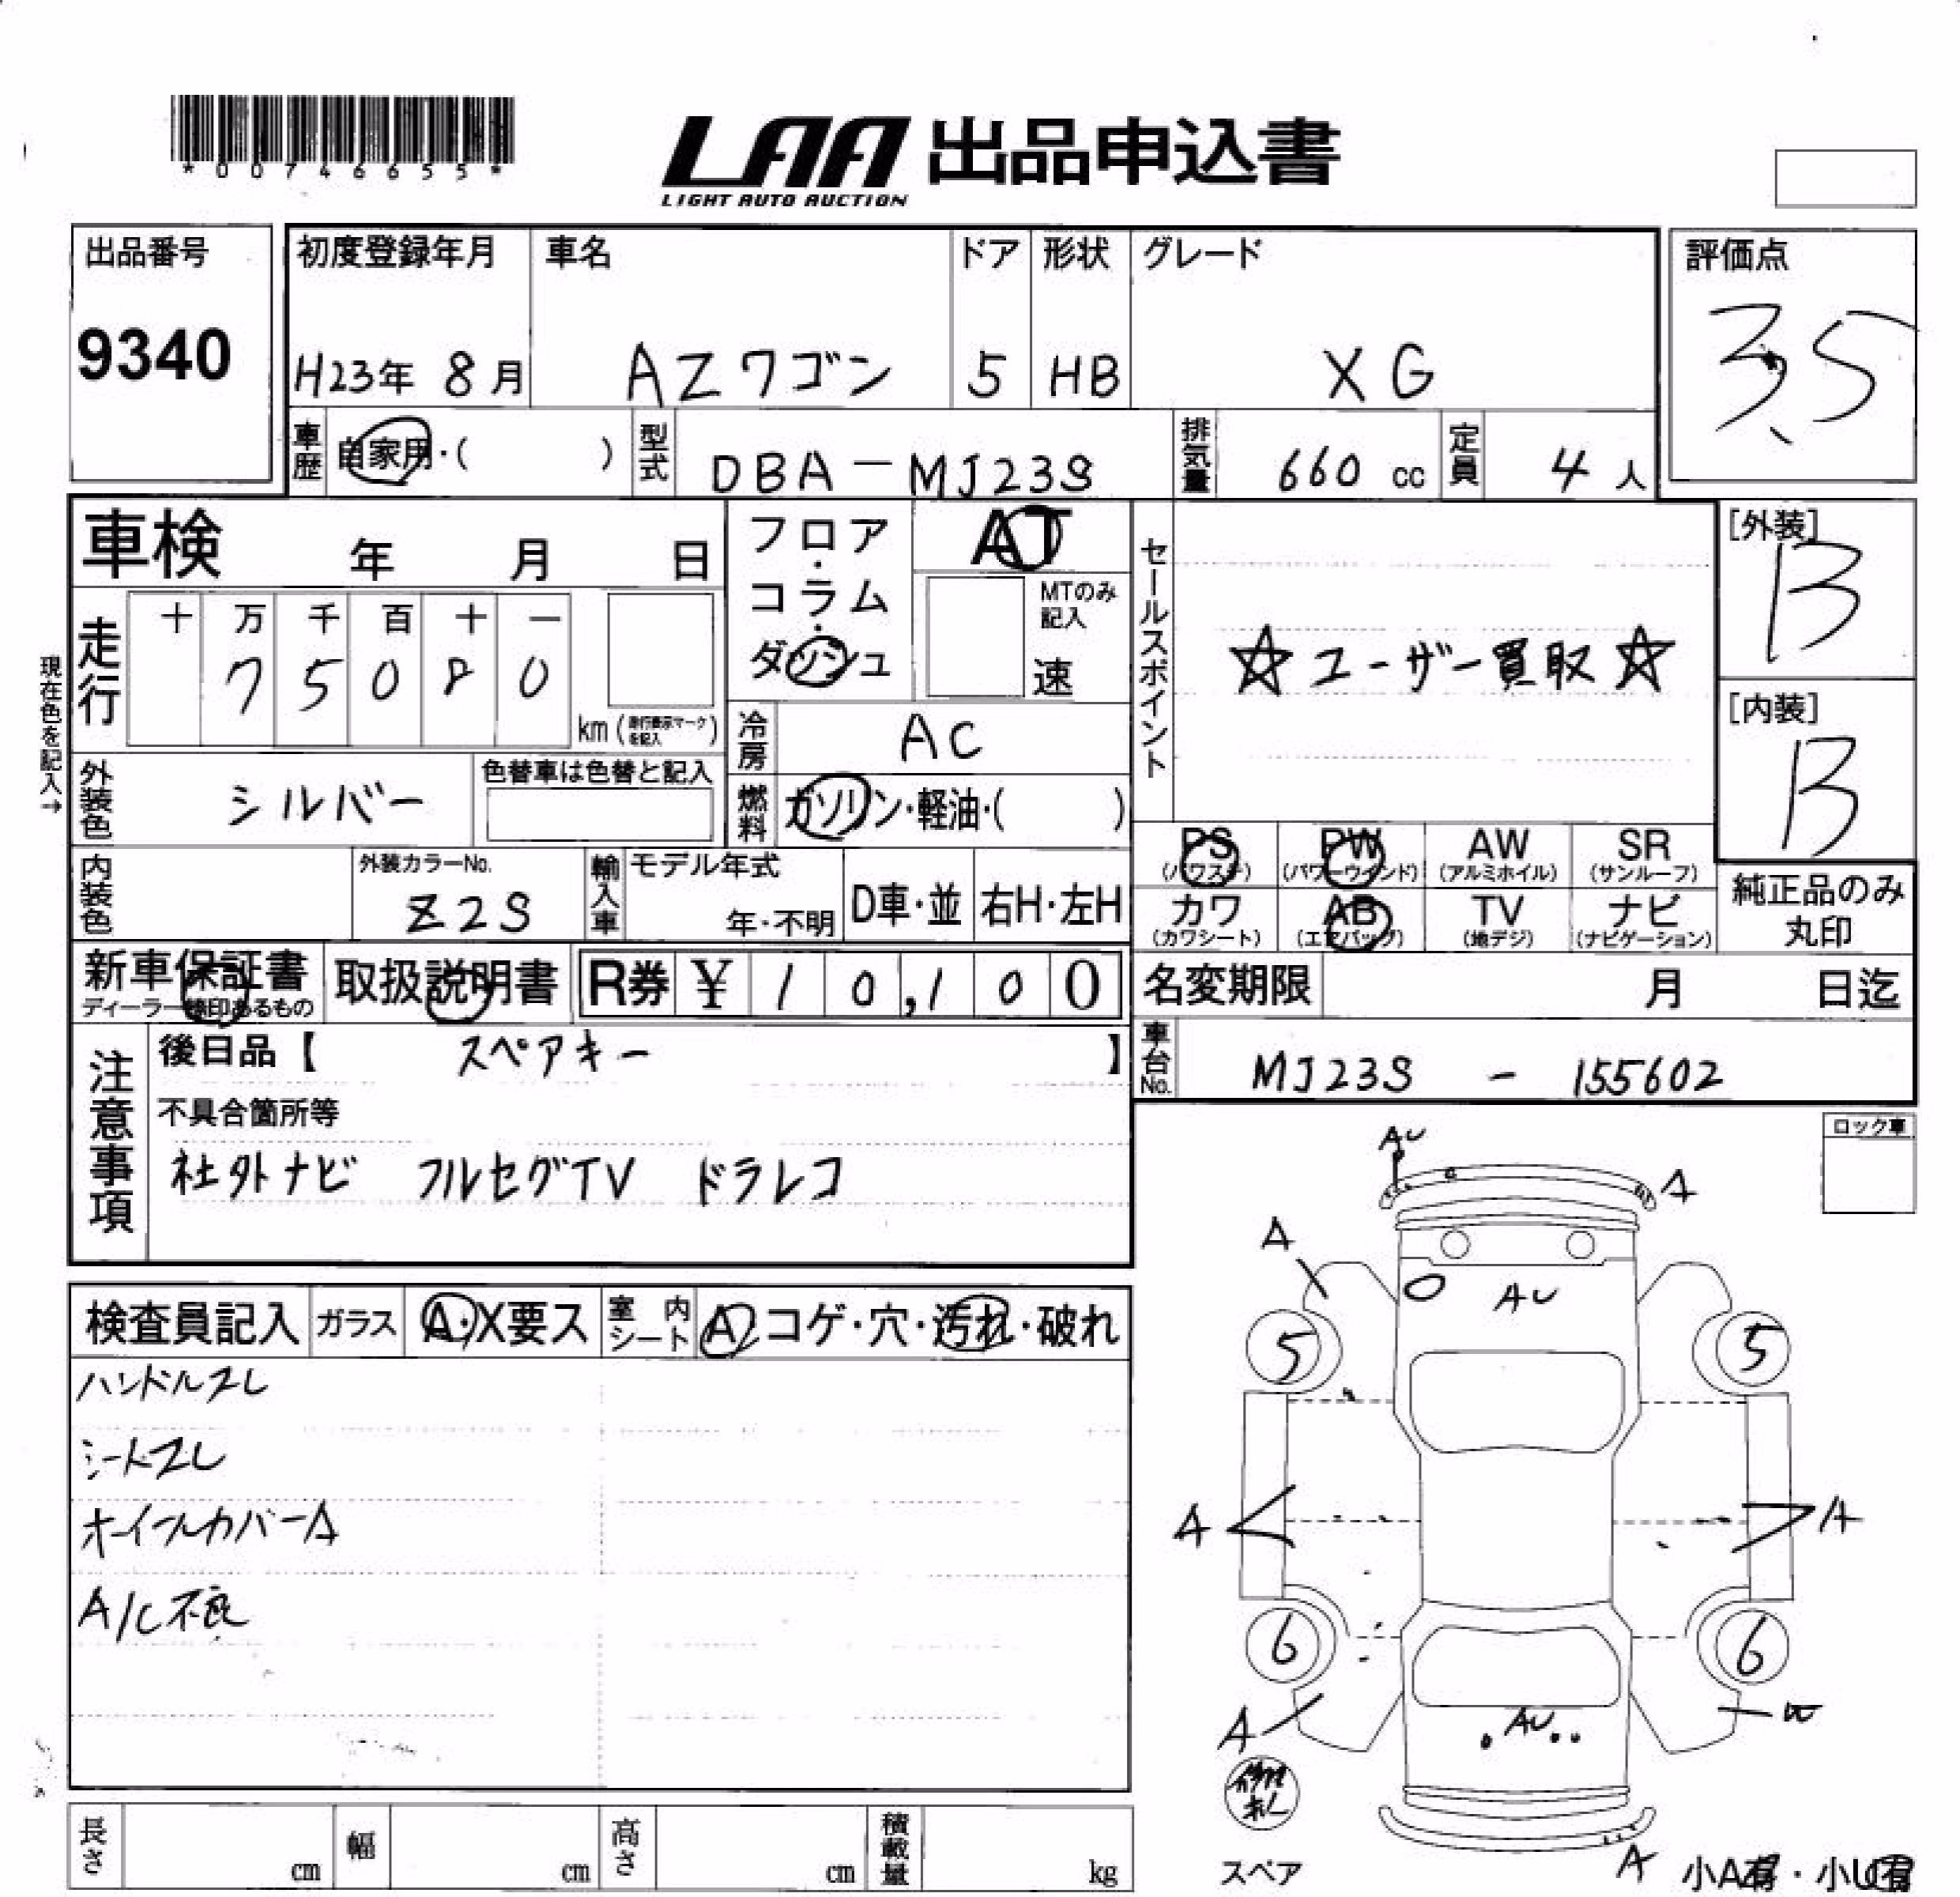 *00746655*
LAA 出品申込書
LIGHT AUTO AUCTION
出品番号
9340
初度登録年月
H23年 8月
車名
AZワゴン
ドア
5
形状
HB
グレード
XG
評価点
3.5
車歴
自家用・( )
型式
DBA-MJ23S
排気量
660 cc
定員
4人
車検 年 月 日
フロア・コラム・ダッシュ
AT
MTのみ記入
速
セールスポイント
☆ユーザー買取☆
[外装]
B
[内装]
B
現在色を記入→
走行
十 万 千 百 十 一
7 5 0 8 0
km (走行表示マークを記入)
冷房
AC
外装色
シルバー
色替車は色替と記入
燃料
ガソリン・軽油・( )
PS (パワステ)
PW (パワーウインド)
AW (アルミホイル)
SR (サンルーフ)
カワ (カワシート)
AB (エアバッグ)
TV (地デジ)
ナビ (ナビゲーション)
純正品のみ丸印
内装色
外装カラーNo.
Z2S
輸入車
モデル年式
年・不明
D車・並
右H・左H
新車保証書
ディーラー検印あるもの
取扱説明書
R券 ¥ 10,100
名変期限 月 日迄
注意事項
後日品【 スペアキー 】
車台No.
MJ23S - 155602
不具合箇所等
社外ナビ フルセグTV ドラレコ
ロック車
検査員記入
ガラス
A・X要ス
室内シート
A コゲ・穴・汚れ・破れ
ハンドルスレ
シートスレ
ホイールカバーA
A/C不良
AU
A
A
AU
5
5
A
A
6
6
A
W
AU
A
長さ cm
幅 cm
高さ cm
積載量 kg
スペア
小A有・小U有